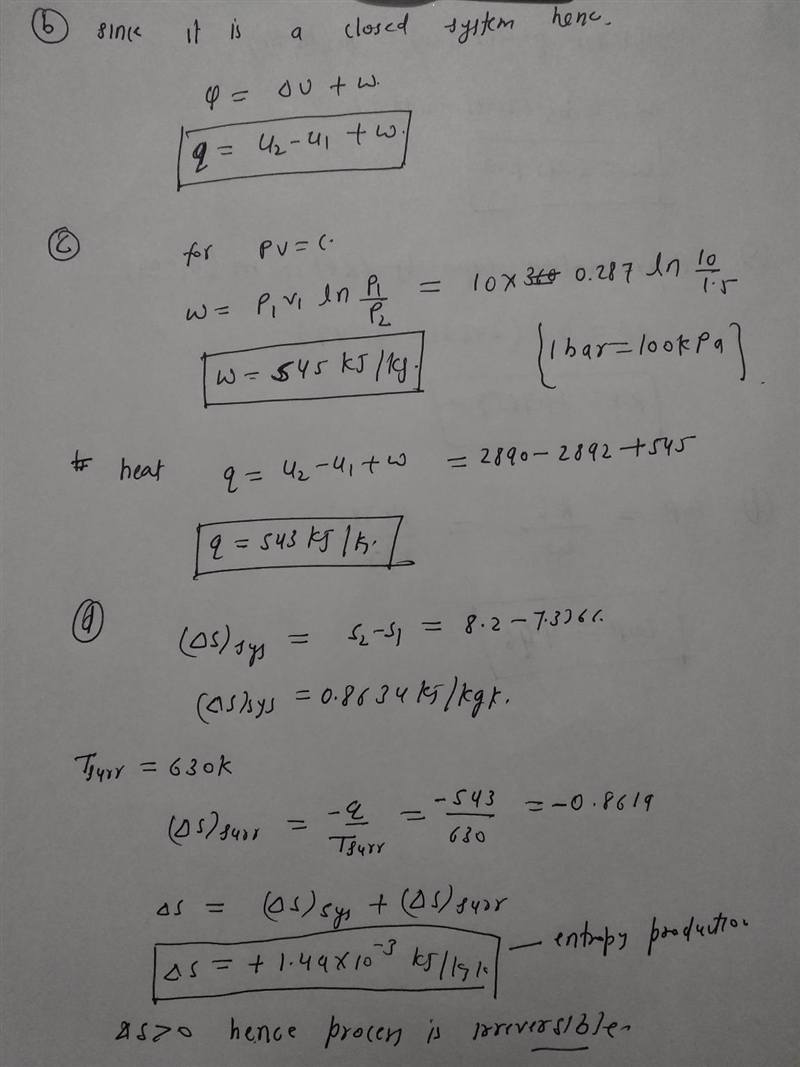 (b) since it is a closed system henc.
φ = ΔU + W.
q = u2-u1 + w.
(c) for PV=C.
w = P1 v1 ln P1/P2 = 10 x 0.287 ln 10/1.5
w = 545 kJ/kg.
{1 bar = 100 kPa}.
heat q = u2-u1+w = 2890-2892+545
q = 543 kJ/k.
(d) (ΔS)sys = s2-s1 = 8.2 - 7.3366.
(ΔS)sys = 0.8634 kJ/kgk.
Tsurr = 630k
(ΔS)surr = -q/Tsurr = -543/630 = -0.8619
ΔS = (ΔS)sys + (ΔS)surr
ΔS = + 1.49x10^-3 kJ/kgk — entropy production
ΔS>0 hence proces is irreversible.